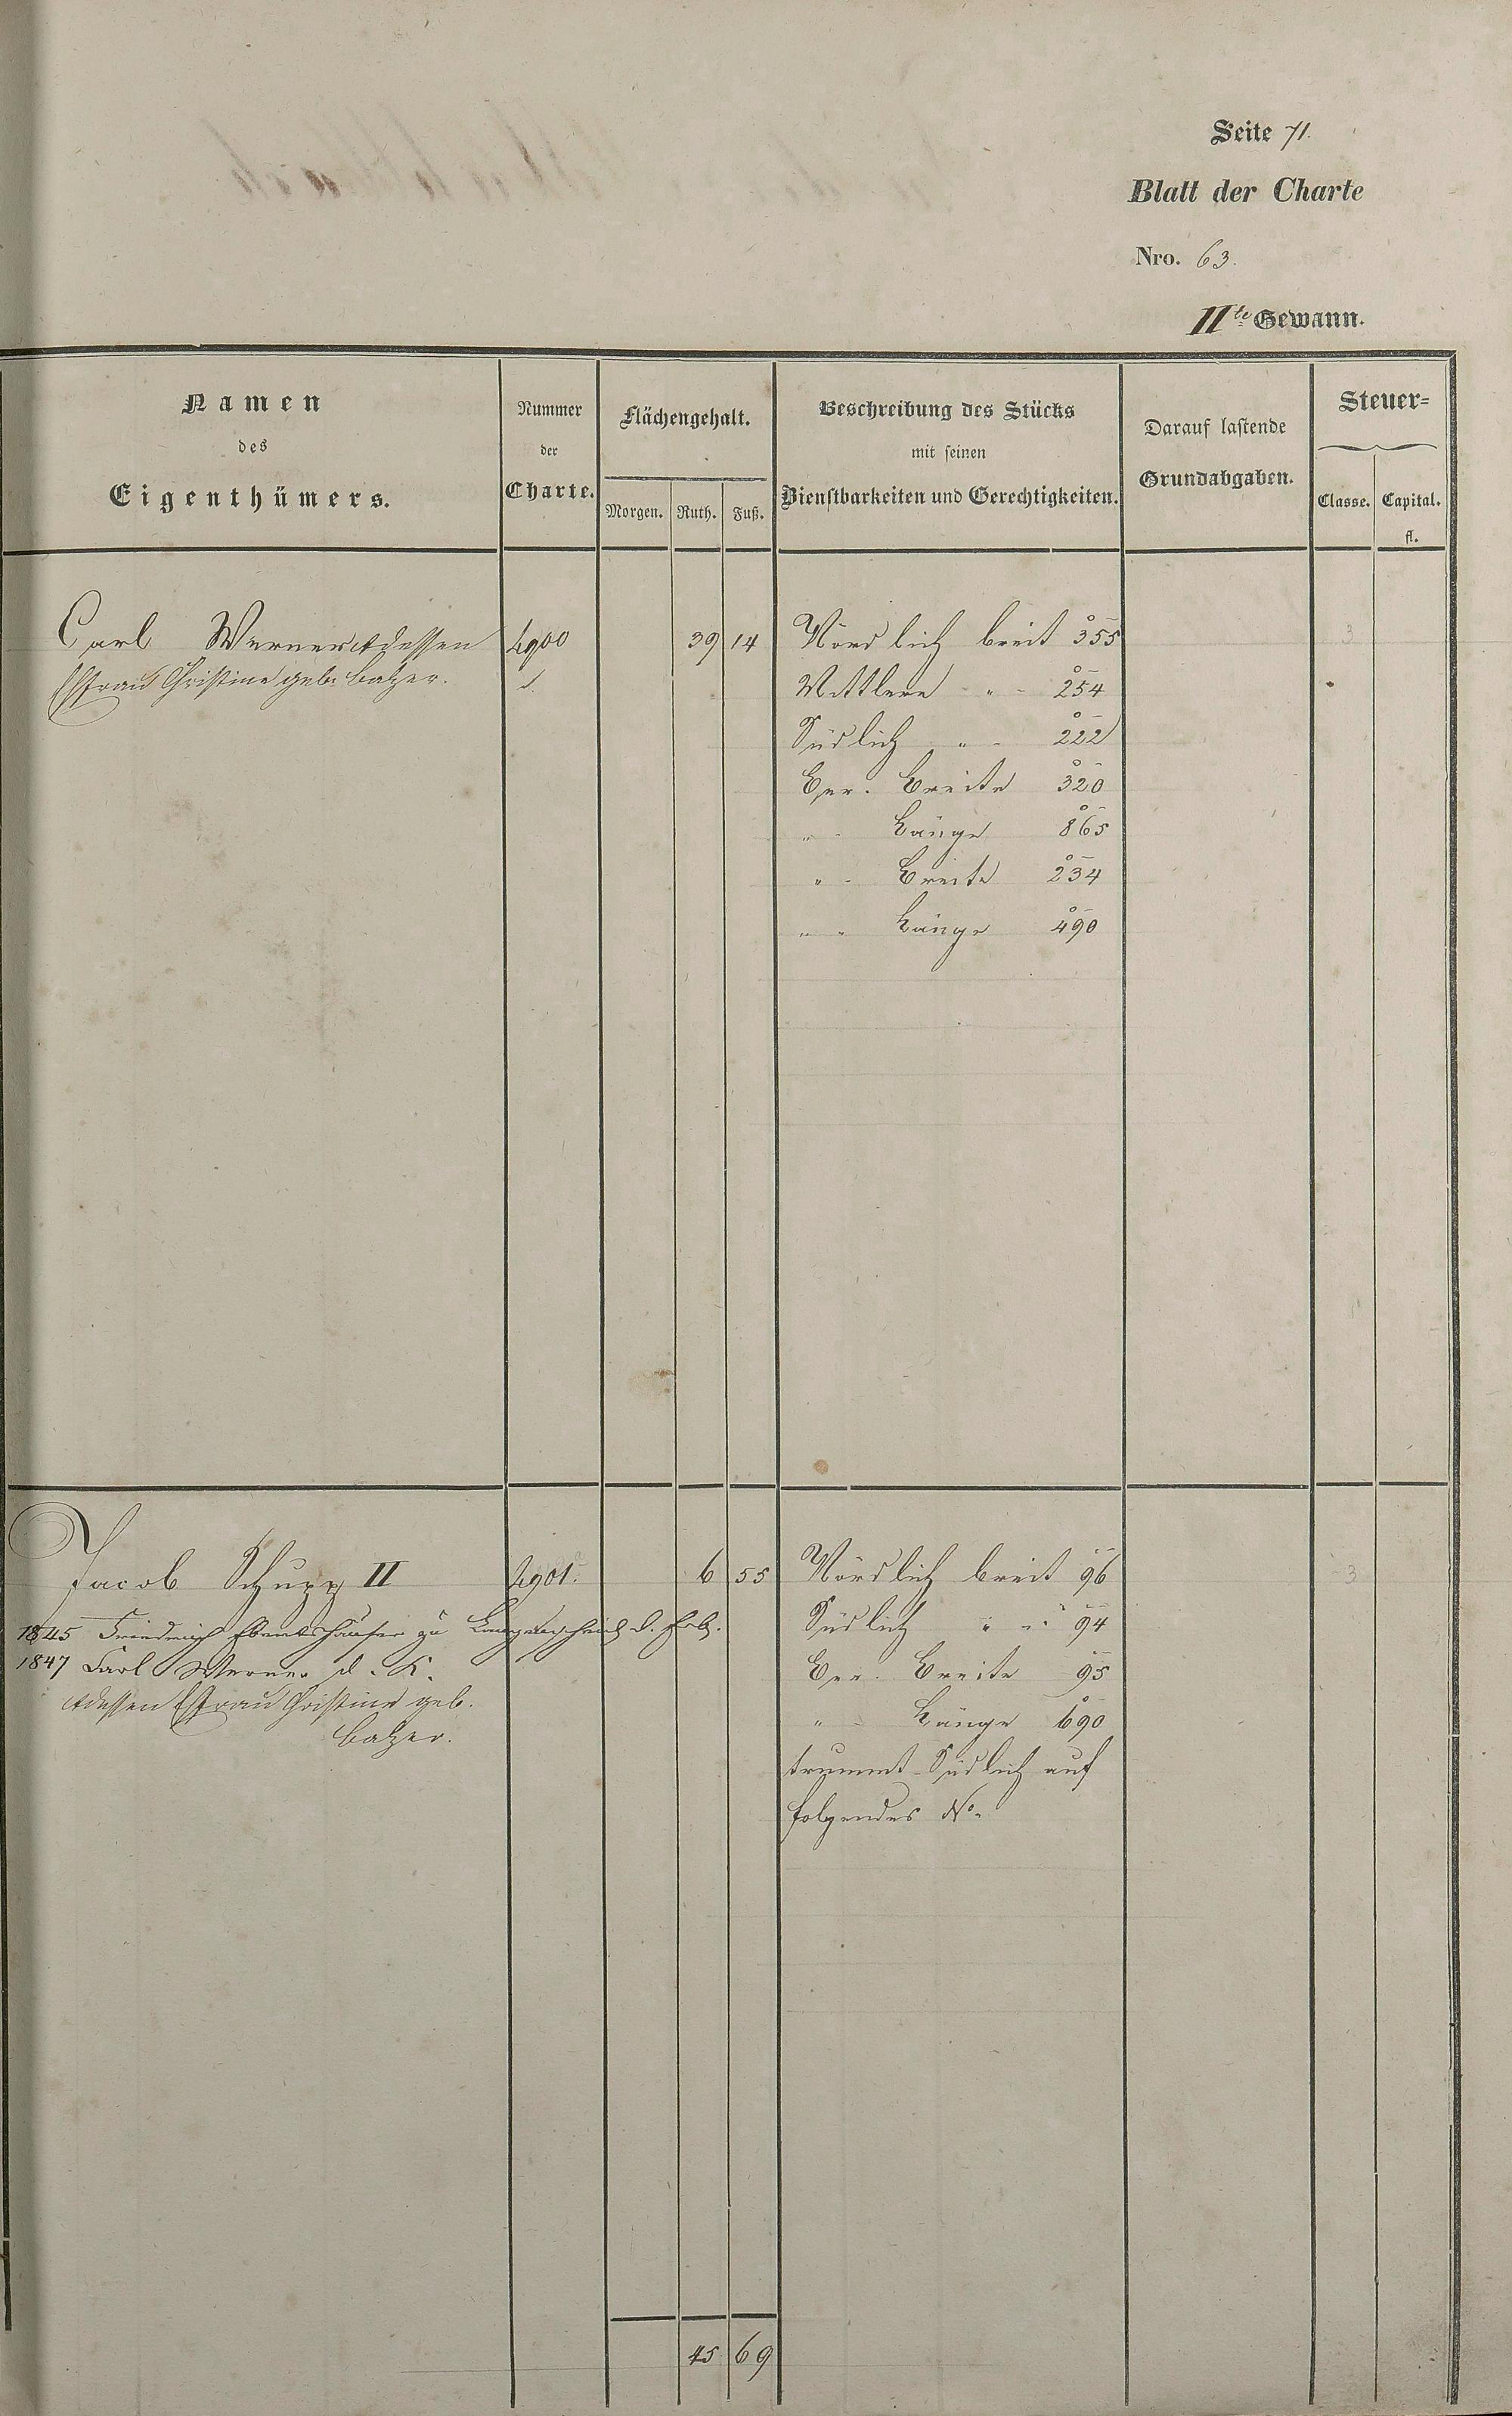 Seite 71.
Blatt der Charte
Nro. 63.
IIte Gewann.
Namen
des
Eigenthümers.
Nummer
der
Charte.
Flächengehalt.
Morgen. Ruth. Fuß.
Beschreibung des Stücks
mit seinen
Dienstbarkeiten und Gerechtigkeiten.
Darauf lastende
Grundabgaben.
Steuer-
Classe. Capital.
fl.
Carl Werner & dessen 4900 39 14 Nördlich breit 355 3
Ehfrau Christine geb. Balzer. Mittlere " - 254
Südlich " - 222
Ger. Breite 320
" - Länge 865
" - Breite 234
" - Länge 490
Jacob Schupp II 4901. 6 55 Nördlich breit 96 3
1845 Friedrich zu d. Erb. Südlich " - 94
1847 Carl Werner d. K. Ger. Breite 95
& dessen Ehfrau Christine geb. " - Länge 690
Balzer.
trummt Südlich auf
folgendes No.
45 69